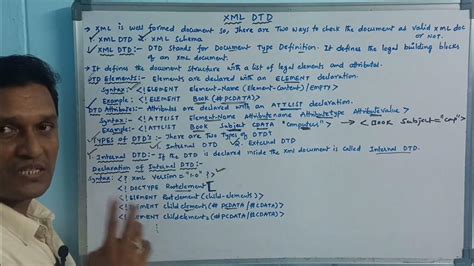 XML DTD
→ XML is well formed document so, There are Two ways to check the document as valid XML doc
✓ XML DTD ✓ XML Schema or NOT.
✓ XML DTD:- DTD stands for Document Type Definition. It defines the legal building blocks
of an xml document.
→ It defines the document structure with a list of legal elements and attributes.
DTD Elements:- Elements are declared with an ELEMENT declaration.
Syntax:- <! ELEMENT Element-Name (Element-Content)/EMPTY>
Example:- <! ELEMENT Book (#PCDATA)>
DTD Attributes:- Attributes are declared with an ATTLIST declaration.
Syntax:- <! ATTLIST Element-Name Attributename Attributetype Attributevalue>
Example:- <! ATTLIST Book Subject CDATA "computers"> → <Book Subject="comp">
✓ TYPES OF DTD's:- There are Two Types of DTD's
1. Internal DTD 2. External DTD
✓ Internal DTD:- If the DTD is declared inside the xml document is called Internal DTD.
Declaration of Internal DTD:-
Syntax: <? xml version="1.0" ?> ✓
<! DOCTYPE Rootelement [
<! ELEMENT Rootelement (child-elements)>
<! ELEMENT childelement1 (#PCDATA/#CDATA)>
<! ELEMENT childelement2 (#PCDATA/#CDATA)>